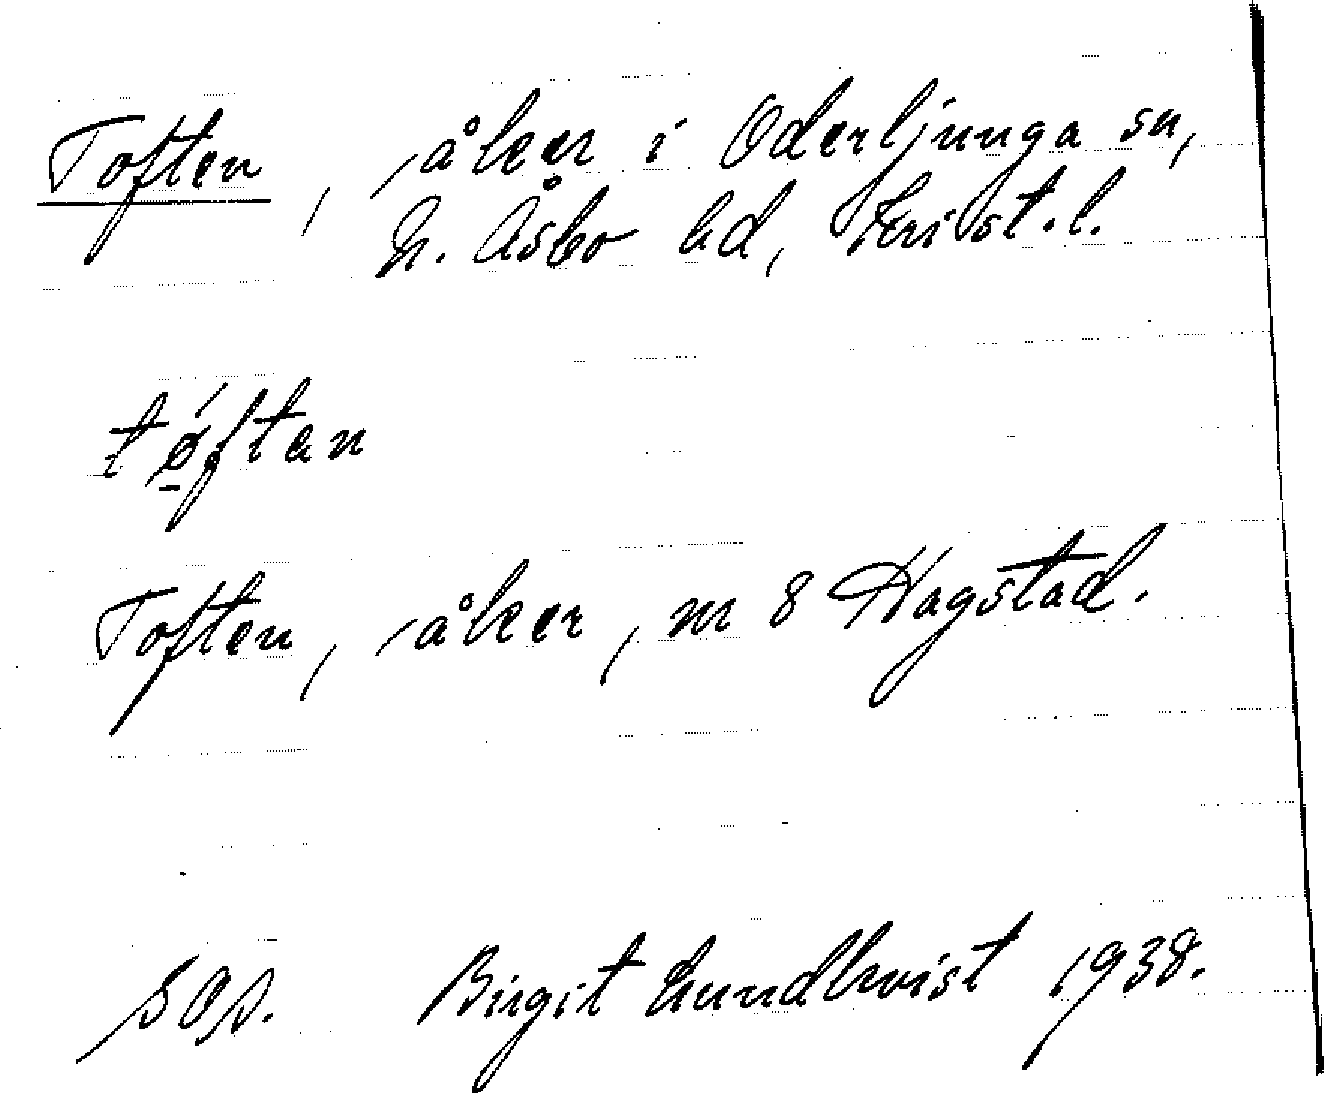 Toften, åker i Oderljunga sn,
N. Åsbo hd, Krist. l.
tǿ̱ftan
Toften, åker, m 8 Hagstad.
sås. Birgit Lundkvist 1938.